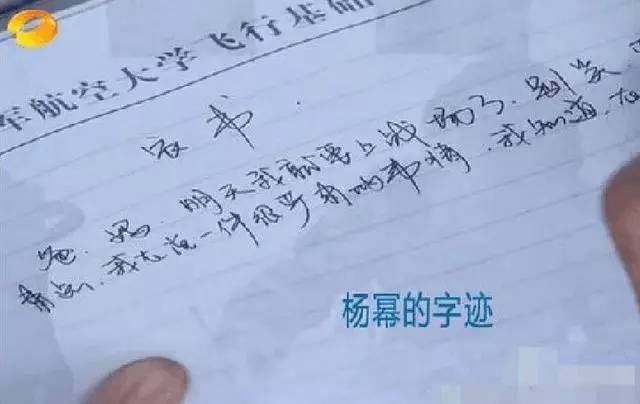 军航空大学飞行基础
家书
爸、妈、明天我就要上战场了、别笑
我在说一件很严肃的事情、我知道、在
杨幂的字迹